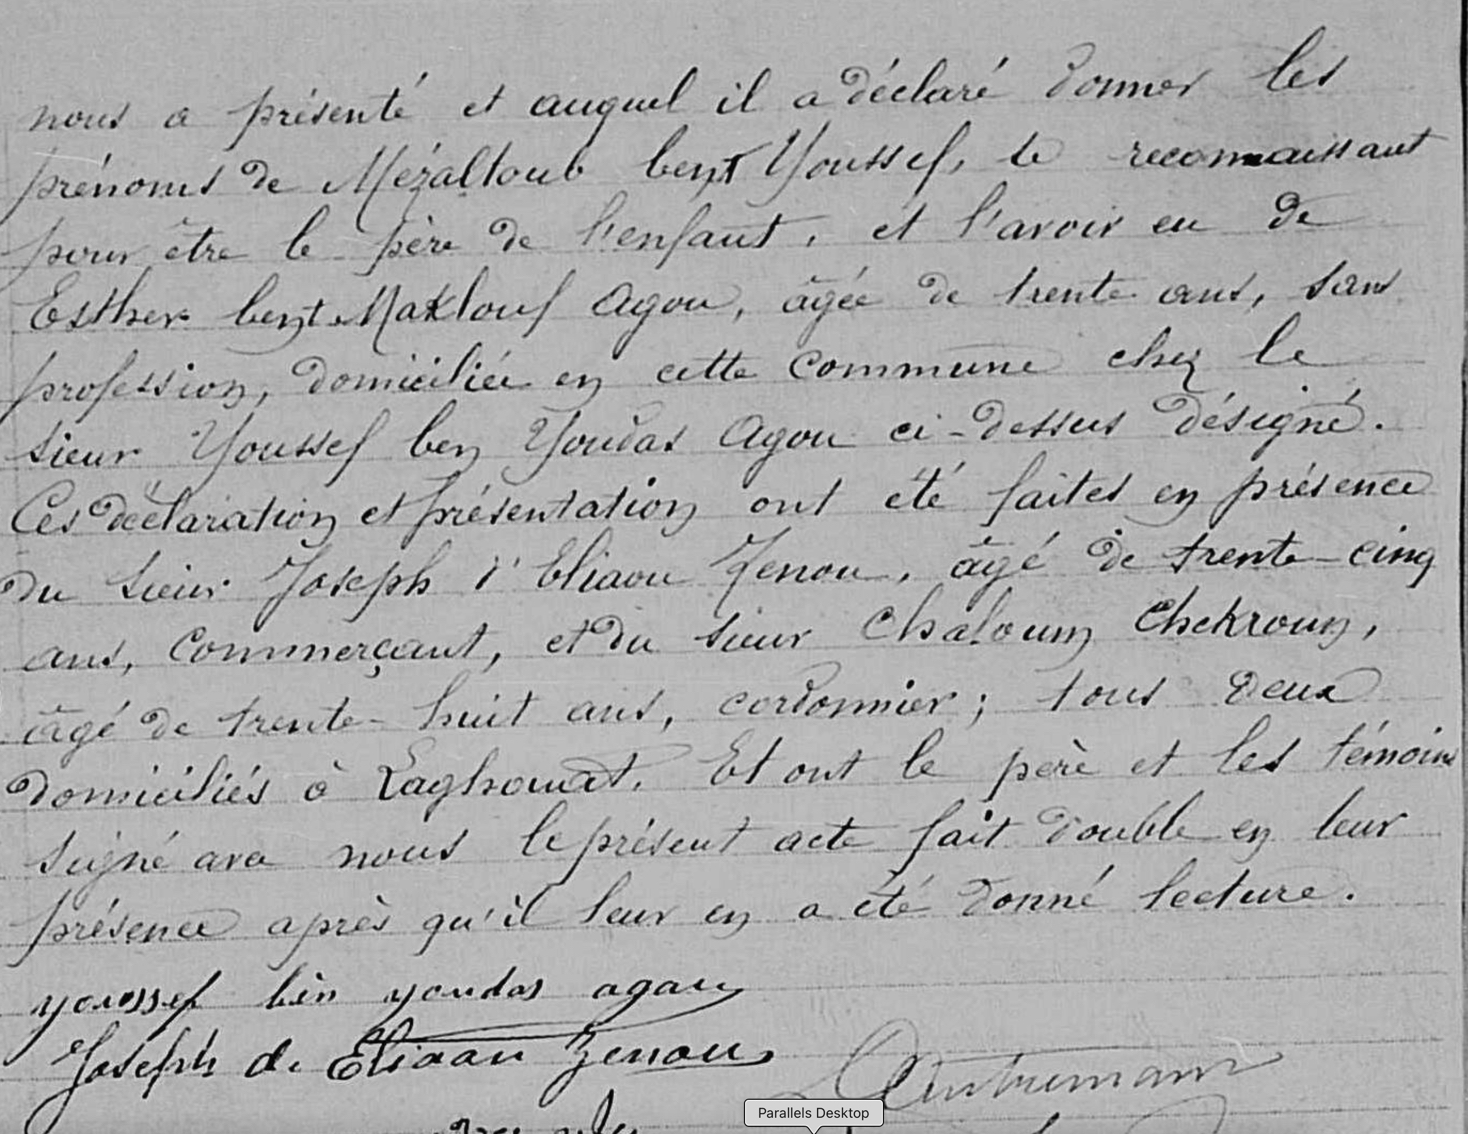 nous a présenté et auquel il a déclaré donner les
prénoms de Mézaltoub bent Youssef, le reconnaissant
pour être le père de l'enfant, et l'avoir eu de
Esther bent Maklouf Agou, âgée de trente ans, sans
profession, domiciliée en cette commune chez le
sieur Youssef ben Youdas Agou ci-dessus désigné.
Ces déclaration et présentation ont été faites en présence
du sieur Joseph d'Eliaou Zenou, âgé de trente-cinq
ans, commerçant, et du sieur Chaloum Chekroun,
âgé de trente-huit ans, cordonnier; tous deux
domiciliés à Laghouat. Et ont le père et les témoins
signé avec nous le présent acte fait double en leur
présence après qu'il leur en a été donné lecture.
youssef bèn youdas agau
Joseph de Eliaau Zenau
Parallels Desktop